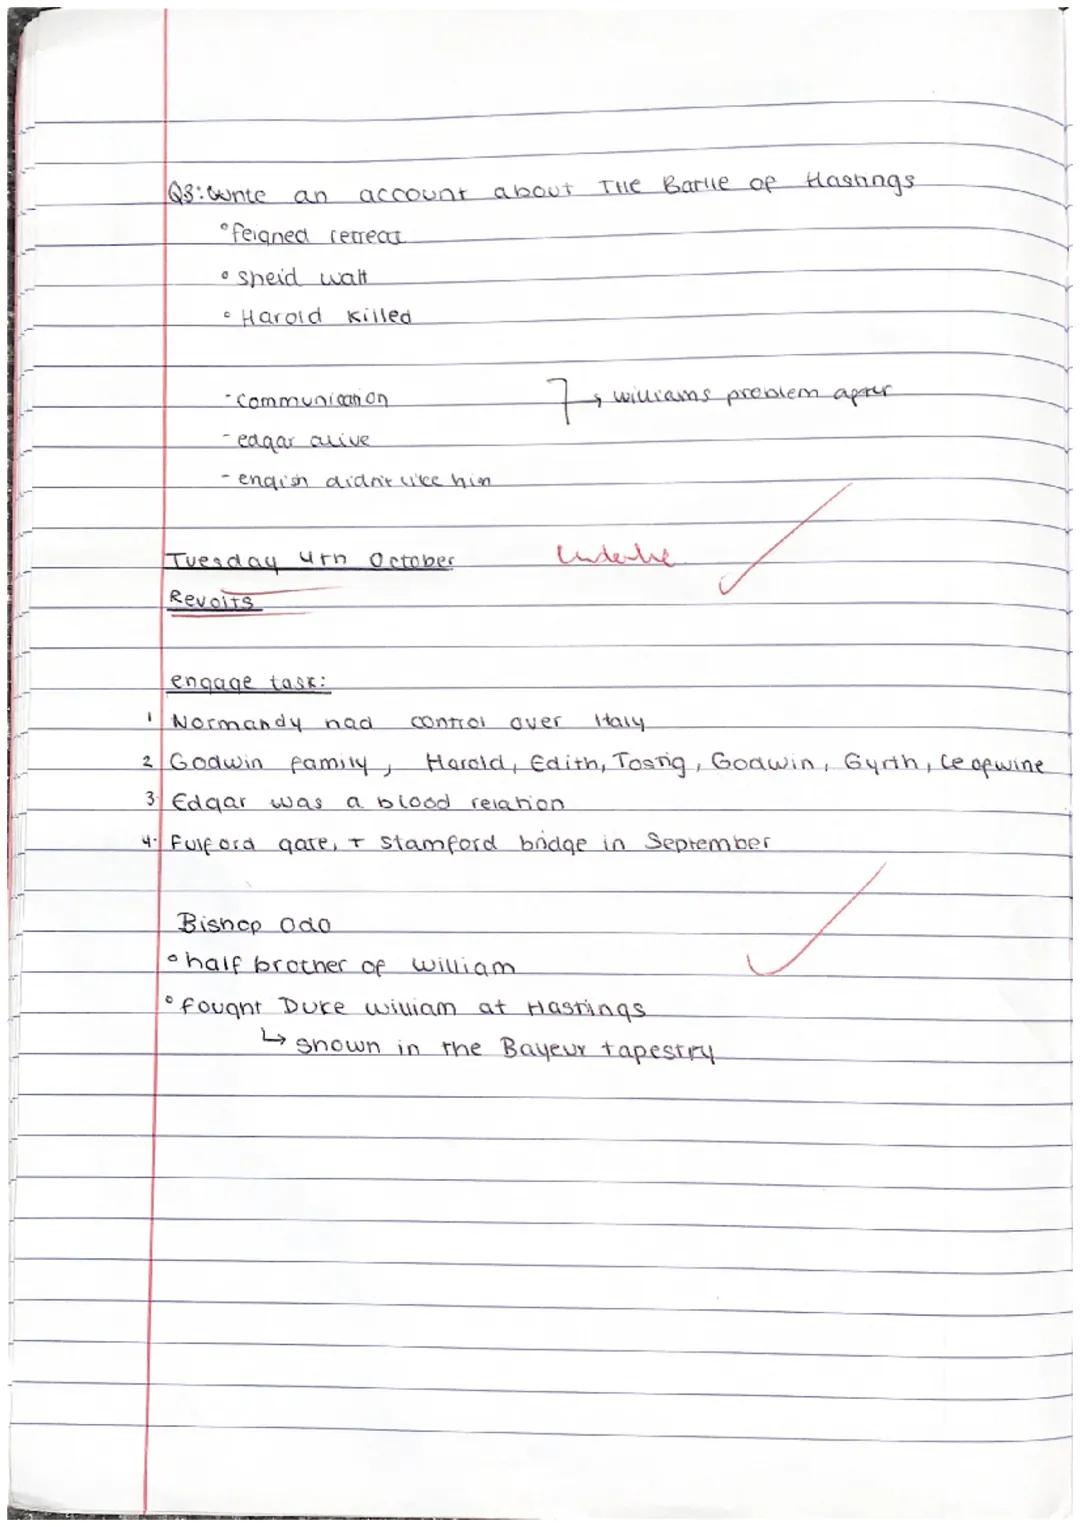 Q8: Write an account about THE Battle of Hastings
° feigned retreat
° sheid wall
° Harold killed
- communication → williams problem after
- edgar alive
- english didn't like him
Tuesday 4th October underline
Revolts
engage task:
1 Normandy had control over Italy
2 Godwin family, Harold, Edith, Tostig, Godwin, Gyrth, Leofwine
3. Edgar was a blood relation
4. Fulford gate, + stamford bridge in September
Bishop Odo
° half brother of william
° fought Duke william at Hastings
↳ shown in the Bayeux tapestry